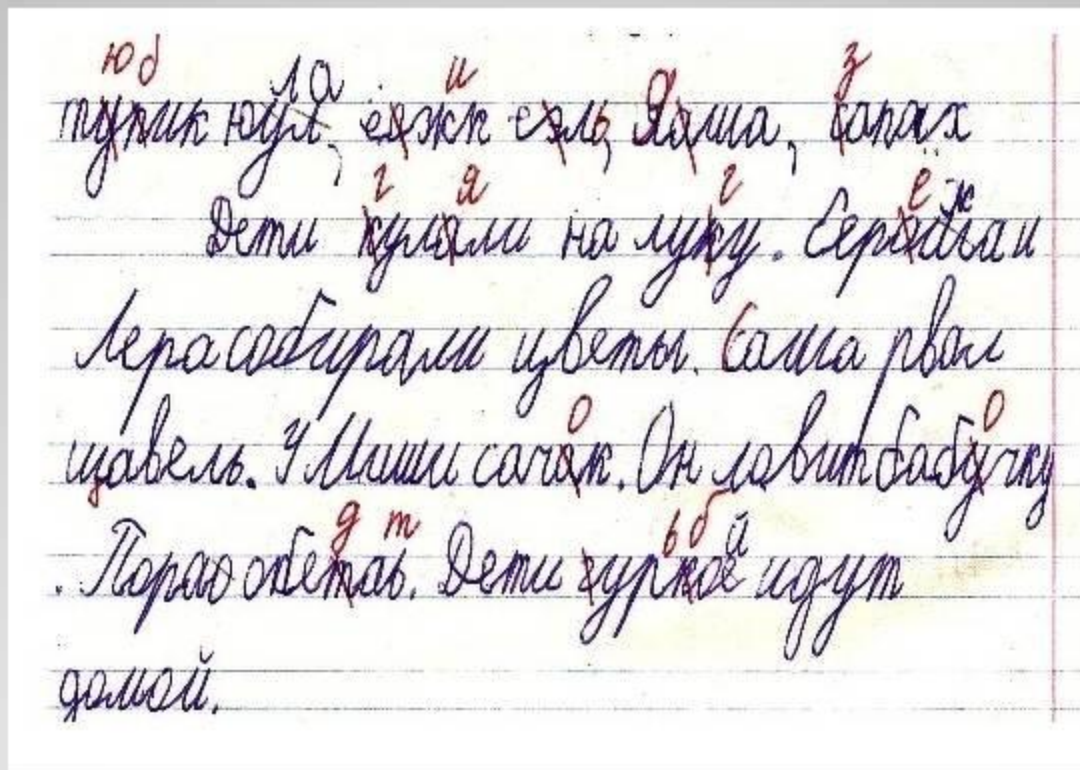 ю б ла и з
тупик юул, ёажк еэль, Яаша, сапах
г я г ё ж
Дети кулали на луку. и
Лера собирали цветы. Саша рвал
о о
щавель. У Миши сачак. Он ловит бабучку
д т ь б й
. Пора обетаь. Дети идут
домой.